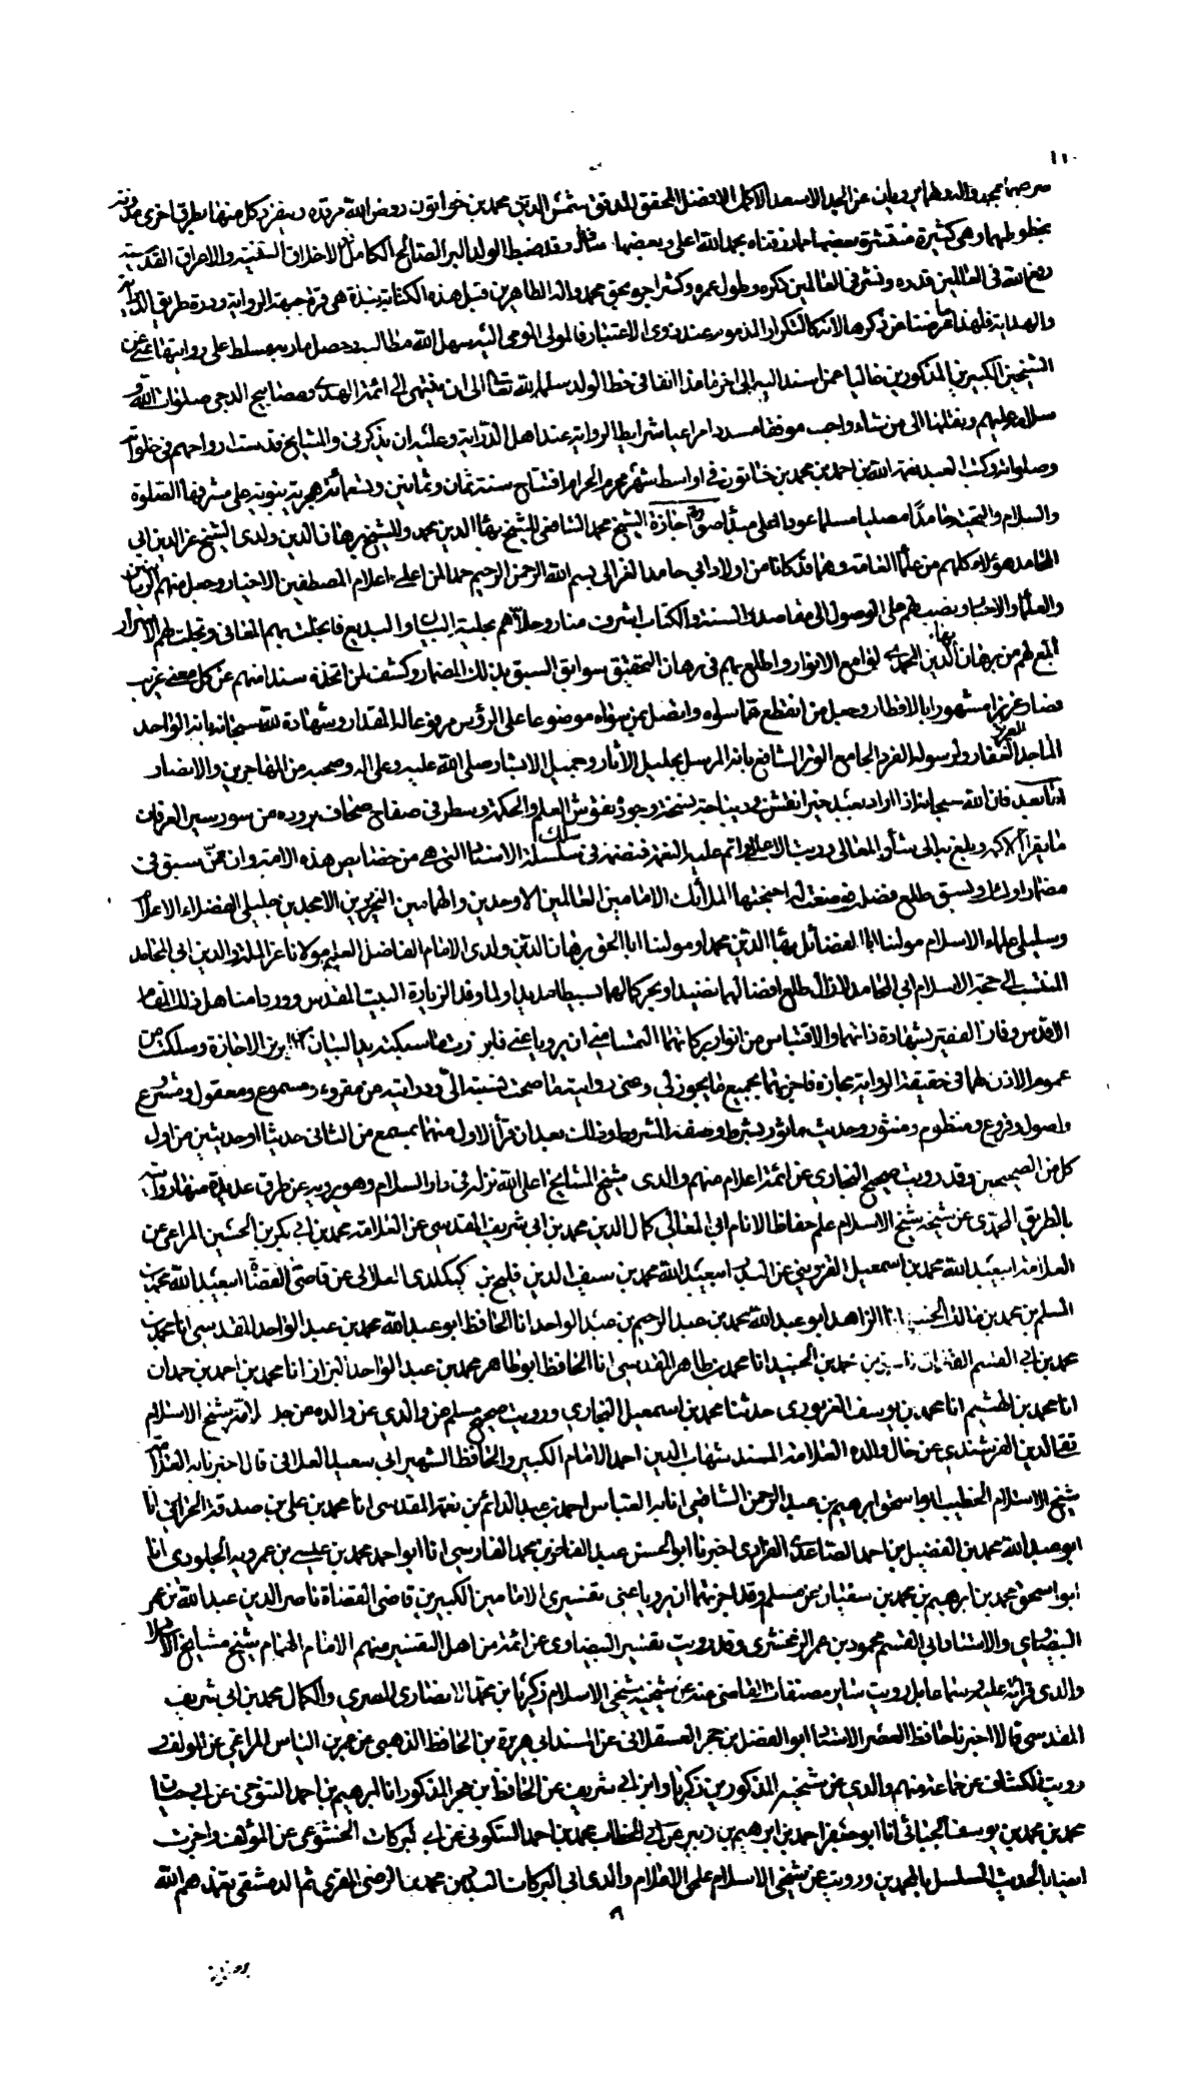 ١١٠
عن الجد الاسعد الاكمل الافضل المحقق المدقق شمس الدين محمد بن خواتون روض الله مرقده ينفرد كل منهما بطرق اخرى مدونة
بخطوطهما وهي كثيرة منتشرة بعضها مما رزقناه بحمد الله اعلى وبعضها وقد ضبط الولد البر الصالح الكامل ذو الاخلاق السنية والاعراق القدسية
رفع الله في العالمين قدره ونشر في العالمين ذكره وطول عمره وكثر اجره بحق محمد واله الطاهرين قبل هذه الكتابة نبذة هي قرة جبهة الرواية ودرة طريق الدراية
والهداية فلهذا اعرضنا عن ذكرها لانه كالتكرار المذموم عند ذوي الاعتبار فالمولى المومى اليه سهل الله مطالبه وحصل ماربه مسلط على روايتها عني عن
الشيخين الكبيرين المذكورين خاليا عمن اسند اليه الى اخر ما في خط الولد سلمه الله تعالى الى ان ينتهي الى ائمة الهدى ومصابيح الدجى صلوات الله
وسلامه عليهم ونقلها الى من شاء واحب موفقا مسددا مراعيا شرايط الرواية عند اهل الدراية وعليه ان يذكرني والمشايخ قدست ارواحهم في خلواته
وصلواته وكتب العبد نعمة الله بن احمد بن محمد بن خاتون في اواسط شهر محرم الحرام افتتاح سنة ثمان وثمانين وتسعمائة هجرية نبوية على مشرفها الصلوة
والسلام والتحية حامدا مصليا مسلما صورة اجازة الشيخ محمد الشافعي للشيخ بهاء الدين محمد وللشيخ برهان الدين ولدي الشيخ عز الدين ابي
المحامد هؤلاء كلهم من علماء العامة وهما قد كانا من اولاد ابي حامد الغزالي بسم الله الرحمن الرحيم حمدا لمن اعلى اعلام المصطفين الاخيار وجعل منهم الربانيين
والعلماء والاحبار ونصبهم على الوصول الى مقاصد السنة والكتاب اشرف منار وحلاهم بحلية البيان والبديع فانجلت بهم المعاني وتجلت لهم الاسرار
المع لهم من برهان بهاء الدين المحمدي لوامع الانوار واطلع بهم في برهان التحقيق سوابق السبق بذلك المضمار وكشف لمن اتخذه سندا منهم عن كل معنى غريب
فصار عزيزا مشهورا بالاقطار وجعل من انقطع عما سواه واتصل بمن سواه موضوعا على الرؤس مرفوعا له المقدار وشهادة لله سبحانه بانه الواحد
الماجد العزيز الغفار ولرسوله الفرد الجامع الوتر الشافع بانه المرسل بجليل الآثار وجميل الاستبار صلى الله عليه وعلى اله وصحبه من المهاجرين والانصار
اما بعد فان الله سبحانه اذا اراد بعبد خيرا نقش في ديباجة نسخة وجوده نقوش العلم والحكمة وسطر في صفائح صحائف بروده من سور سير العرفان
ما يقرأ كل وبلغ به الى شأو المعالي ورتب الاعلى واتم عليه النعمة فنضمه في سلك سلسلة الاسناد التي هي من خصايص هذه الامة وان ممن سبق في
مضمار اولئك ولسبق طلع فضله وضعت له اجنحتها الملائك الامامين العالمين الاوحدين والهمامين النحريرين الامجدين جليلي الفضلاء الاعلام
وسليلي علماء الاسلام مولنا ابا الفضائل بهاء الدين محمدا ومولنا ابا الحق برهان الدين ولدي الامام الفاضل العليم مولانا عز الملة والدين ابي المحامد
المنتسب الى حجة الاسلام ابي حامد الغزالي طلع افضالهما نضيد او بحر كمالهما بسيطا مديدا ولما وفد الزيارة البيت المقدس ووردا مناهل ذلك المقام
الاقدس وفاز الفقير بشهادة ذاتهما والاقتباس من انوار بركاتهما التمسا مني ان يرويا عني فابرزت ما سيكته يد البيان من ابريز الاجازة وسلكت من
عموم الاذن لهما في حقيقة الرواية مجازه فاجزتهما بجميع ما يجوز لي وعني روايته مما صحت نسبته الي ودرايته من مقروء ومسموع ومعقول ومشروع
واصول وفروع ومنظوم ومنثور وحديث ماثور بشرطه وصفة الشرط وذلك بعد ان قرأ الاول منهما بسمع من الثاني حديثا او حديثين من اول
كل من الصحيحين وقد رويت صحيح البخاري عن ائمة اعلام منهم والدي شيخ المشايخ اعلى الله نزله في دار السلام وهو يرويه عن طرق عديدة منها روايته
بالطريق المحمدي عن شيخه شيخ الاسلام علم حفاظ الانام ابي المعالي كمال الدين محمد بن ابي شريف المقدسي عن العلامة محمد بن ابي بكر بن الحسين المراغي عن
العلامة ابي عبيد الله محمد بن اسمعيل القزويني عن السيد ابي عبيد الله محمد بن سيف الدين قليج بن كيكلدي العلائي عن قاضي القضاة ابي عبيد الله محمد بن
المسلم بن محمد بن مالك الحنبلي انا الزاهد ابو عبد الله محمد بن عبد الرحيم بن عبد الواحد انا الحافظ ابو عبد الله محمد بن عبد الواحد المقدسي انا محمد بن
محمد بن ابي القسم محمد بن الجنيد انا محمد بن طاهر المقدسي انا الحافظ ابو طاهر محمد بن عبد الواحد البزاز انا محمد بن احمد بن حمدان
انا محمد بن الهشيم انا محمد بن يوسف الفربوري حدثنا محمد بن اسمعيل البخاري ورويت صحيح مسلم عن والدي عن والده عن جد لامه شيخ الاسلام
تقي الدين القرشندي عن خال والده العلامة المسند شهاب الدين احمد الامام الكبير والحافظ الشهير ابي سعيد العلائي قال اخبرنا به العلامة
شيخ الاسلام الخطيب ابو اسحق ابرهيم بن عبد الرحمن الشافعي انا به العباس احمد بن عبد الدائم بن نعمة المقدسي انا محمد بن علي بن صدقة الحراني انا
ابو عبد الله محمد بن الفضيل بن احمد الصاعدي الفراوي اخبرنا ابو الحسن عبد الغافر بن محمد الفارسي انا ابو احمد محمد بن عيسى بن عمرويه الجلودي انا
ابو اسحق محمد بن ابرهيم بن محمد بن سفيان عن مسلم وقد اجزتهما ان يرويا عني تفسيري الامامين الكبيرين قاضي القضاة ناصر الدين عبد الله بن عمر
البيضاوي والاستاد ابي القسم محمود بن عمر الزمخشري وقد رويت تفسير البيضاوي عن ائمة من اهل التفسير منهم الامام الهمام شيخ مشايخ الاسلام
والدي قرائة عليه وسماعا بل رويت ساير مصنفات القاضي عنه عن شيخيه شيخي الاسلام زكريا بن محمد الانصاري المصري والكمال محمد بن ابي شريف
المقدسي قالا اخبرنا حافظ العصر الاستاد ابو الفضل بن حجر العسقلاني عن المسند ابي هريرة بن الحافظ الذهبي عن عمر بن الياس المراغي عن المولف و
رويت الكشاف عن جماعة منهم والدي عن شيخيه المذكورين زكريا وابن ابي شريف عن الحافظ بن حجر المذكور انا ابرهيم بن احمد التنوخي عن ابي حيان
محمد بن محمد بن يوسف الجياني انا ابو جعفر احمد بن ابرهيم بن زبير عن ابي الخطاب محمد بن احمد السكوني عن ابي البركات الخشوعي عن المؤلف واجزت
ايضا بالحديث المسلسل بالمحمدين ورويته عن شيخي الاسلام علمي الاعلام والدي ابي البركات محمد بن الرضي المقري ثم الدمشقي تغمدهم الله